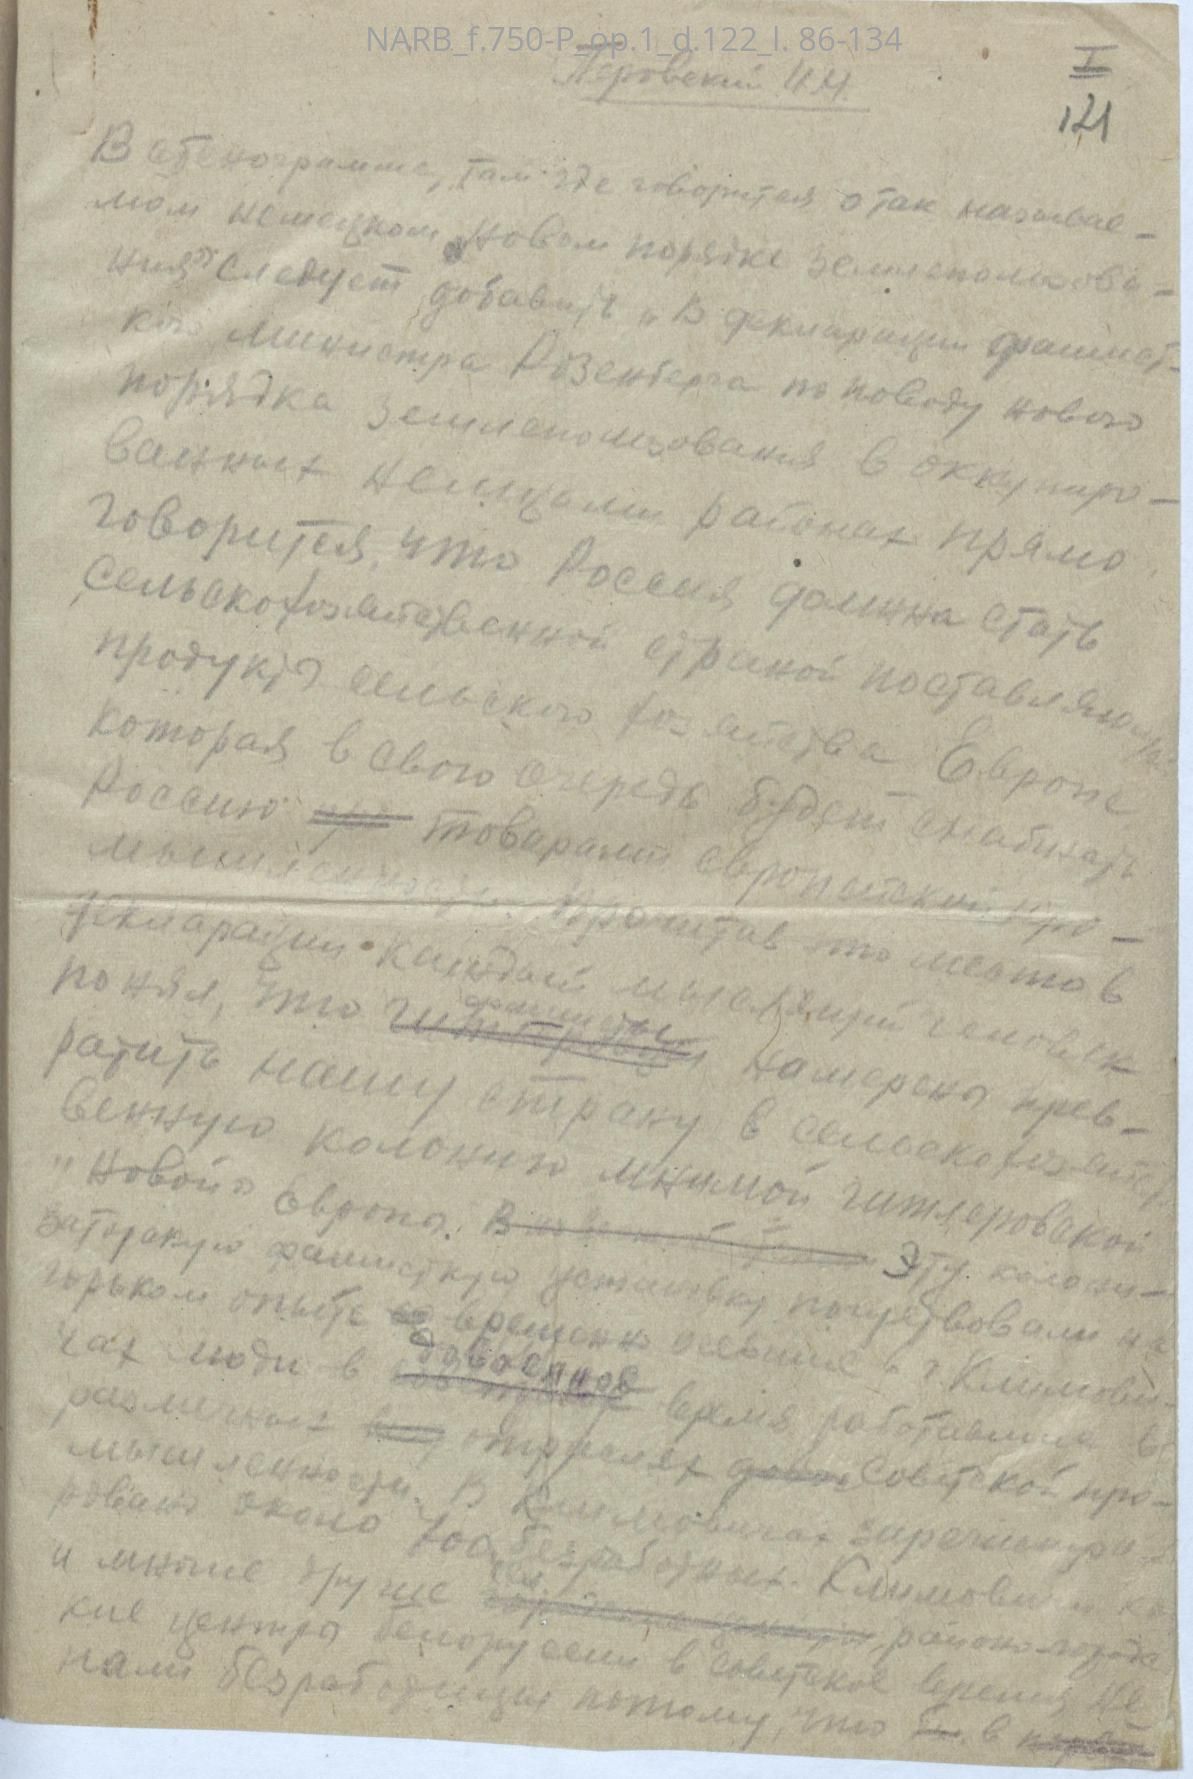 NARB_f.750-P_op.1_d.122_l. 86-134
Перовский И.И.
I
121
В стенограмме, там где говорится о так называе-
мом немецком „Новом порядке землепользова-
ния" следует добавить „В декларации фашист-
кого министра Розенберга по поводу нового
порядка землепользования в оккупиро-
ванных немцами районах прямо
говорится, что Россия должна стать
сельскохозяйственной страной поставляющей
продукты сельского хозяйства Европе
которая в свою очередь будет снабжать
Россию товарами европейской про-
мышленности. Прочитав это место в
декларации каждый мыслящий человек
понял, что фашисты намерены прев-
ратить нашу страну в сельскохозяйст
венную колонию мнимой гитлеровской
"новой" Европы. Эту колони-
заторскую фашисткую установку почувствовали на
горьком опыте временно осевшие в г Климови-
чах люди в довоенное время работавшие в
различных отраслях Советской про-
мышленности. В Климовичах зарегистри-
ровано около безработных. Климовичи ка
и многие другие районо города
кие центры Белоруссии в советское время не
нали безработицы потому, что в